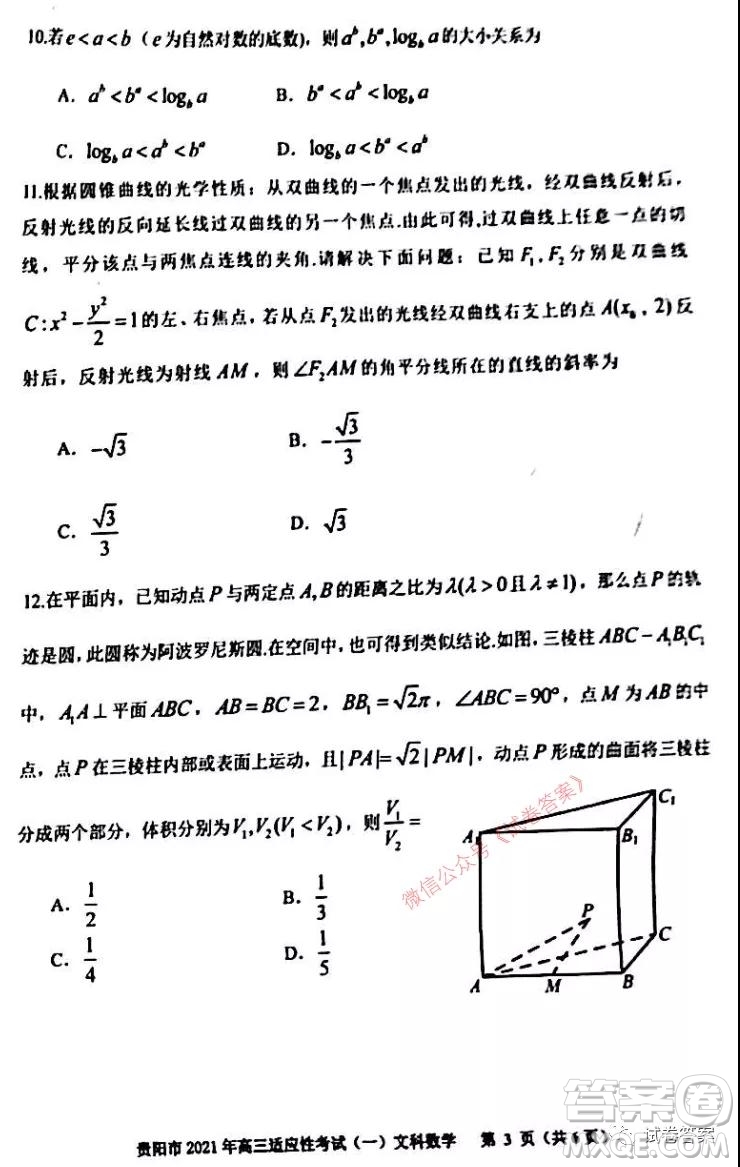 10.若e<a<b（e为自然对数的底数)，则aᵇ,bᵃ,log_b a的大小关系为
A. aᵇ<bᵃ<log_b a B. bᵃ<aᵇ<log_b a
C. log_b a<aᵇ<bᵃ D. log_b a<bᵃ<aᵇ
11.根据圆锥曲线的光学性质：从双曲线的一个焦点发出的光线，经双曲线反射后，
反射光线的反向延长线过双曲线的另一个焦点.由此可得,过双曲线上任意一点的切
线，平分该点与两焦点连线的夹角.请解决下面问题：已知F₁,F₂分别是双曲线
C:x²-y²/2=1的左、右焦点，若从点F₂发出的光线经双曲线右支上的点A(x₀，2)反
射后，反射光线为射线AM，则∠F₂AM的角平分线所在的直线的斜率为
A. -√3 B. -√3/3
C. √3/3 D. √3
12.在平面内，已知动点P与两定点A,B的距离之比为λ(λ>0且λ≠1)，那么点P的轨
迹是圆,此圆称为阿波罗尼斯圆.在空间中,也可得到类似结论.如图,三棱柱ABC-A₁B₁C₁
中，A₁A⊥平面ABC，AB=BC=2，BB₁=√2π，∠ABC=90°，点M为AB的中
点，点P在三棱柱内部或表面上运动，且|PA|=√2|PM|，动点P形成的曲面将三棱柱
分成两个部分，体积分别为V₁,V₂(V₁<V₂)，则V₁/V₂=
A. 1/2 B. 1/3
C. 1/4 D. 1/5
A₁
B₁
C₁
P
C
A
M
B
微信公众号《试卷答案》
贵阳市2021年高三适应性考试（一）文科数学 第 3 页（共6页）
试卷答案
答案圈
MXQE.COM